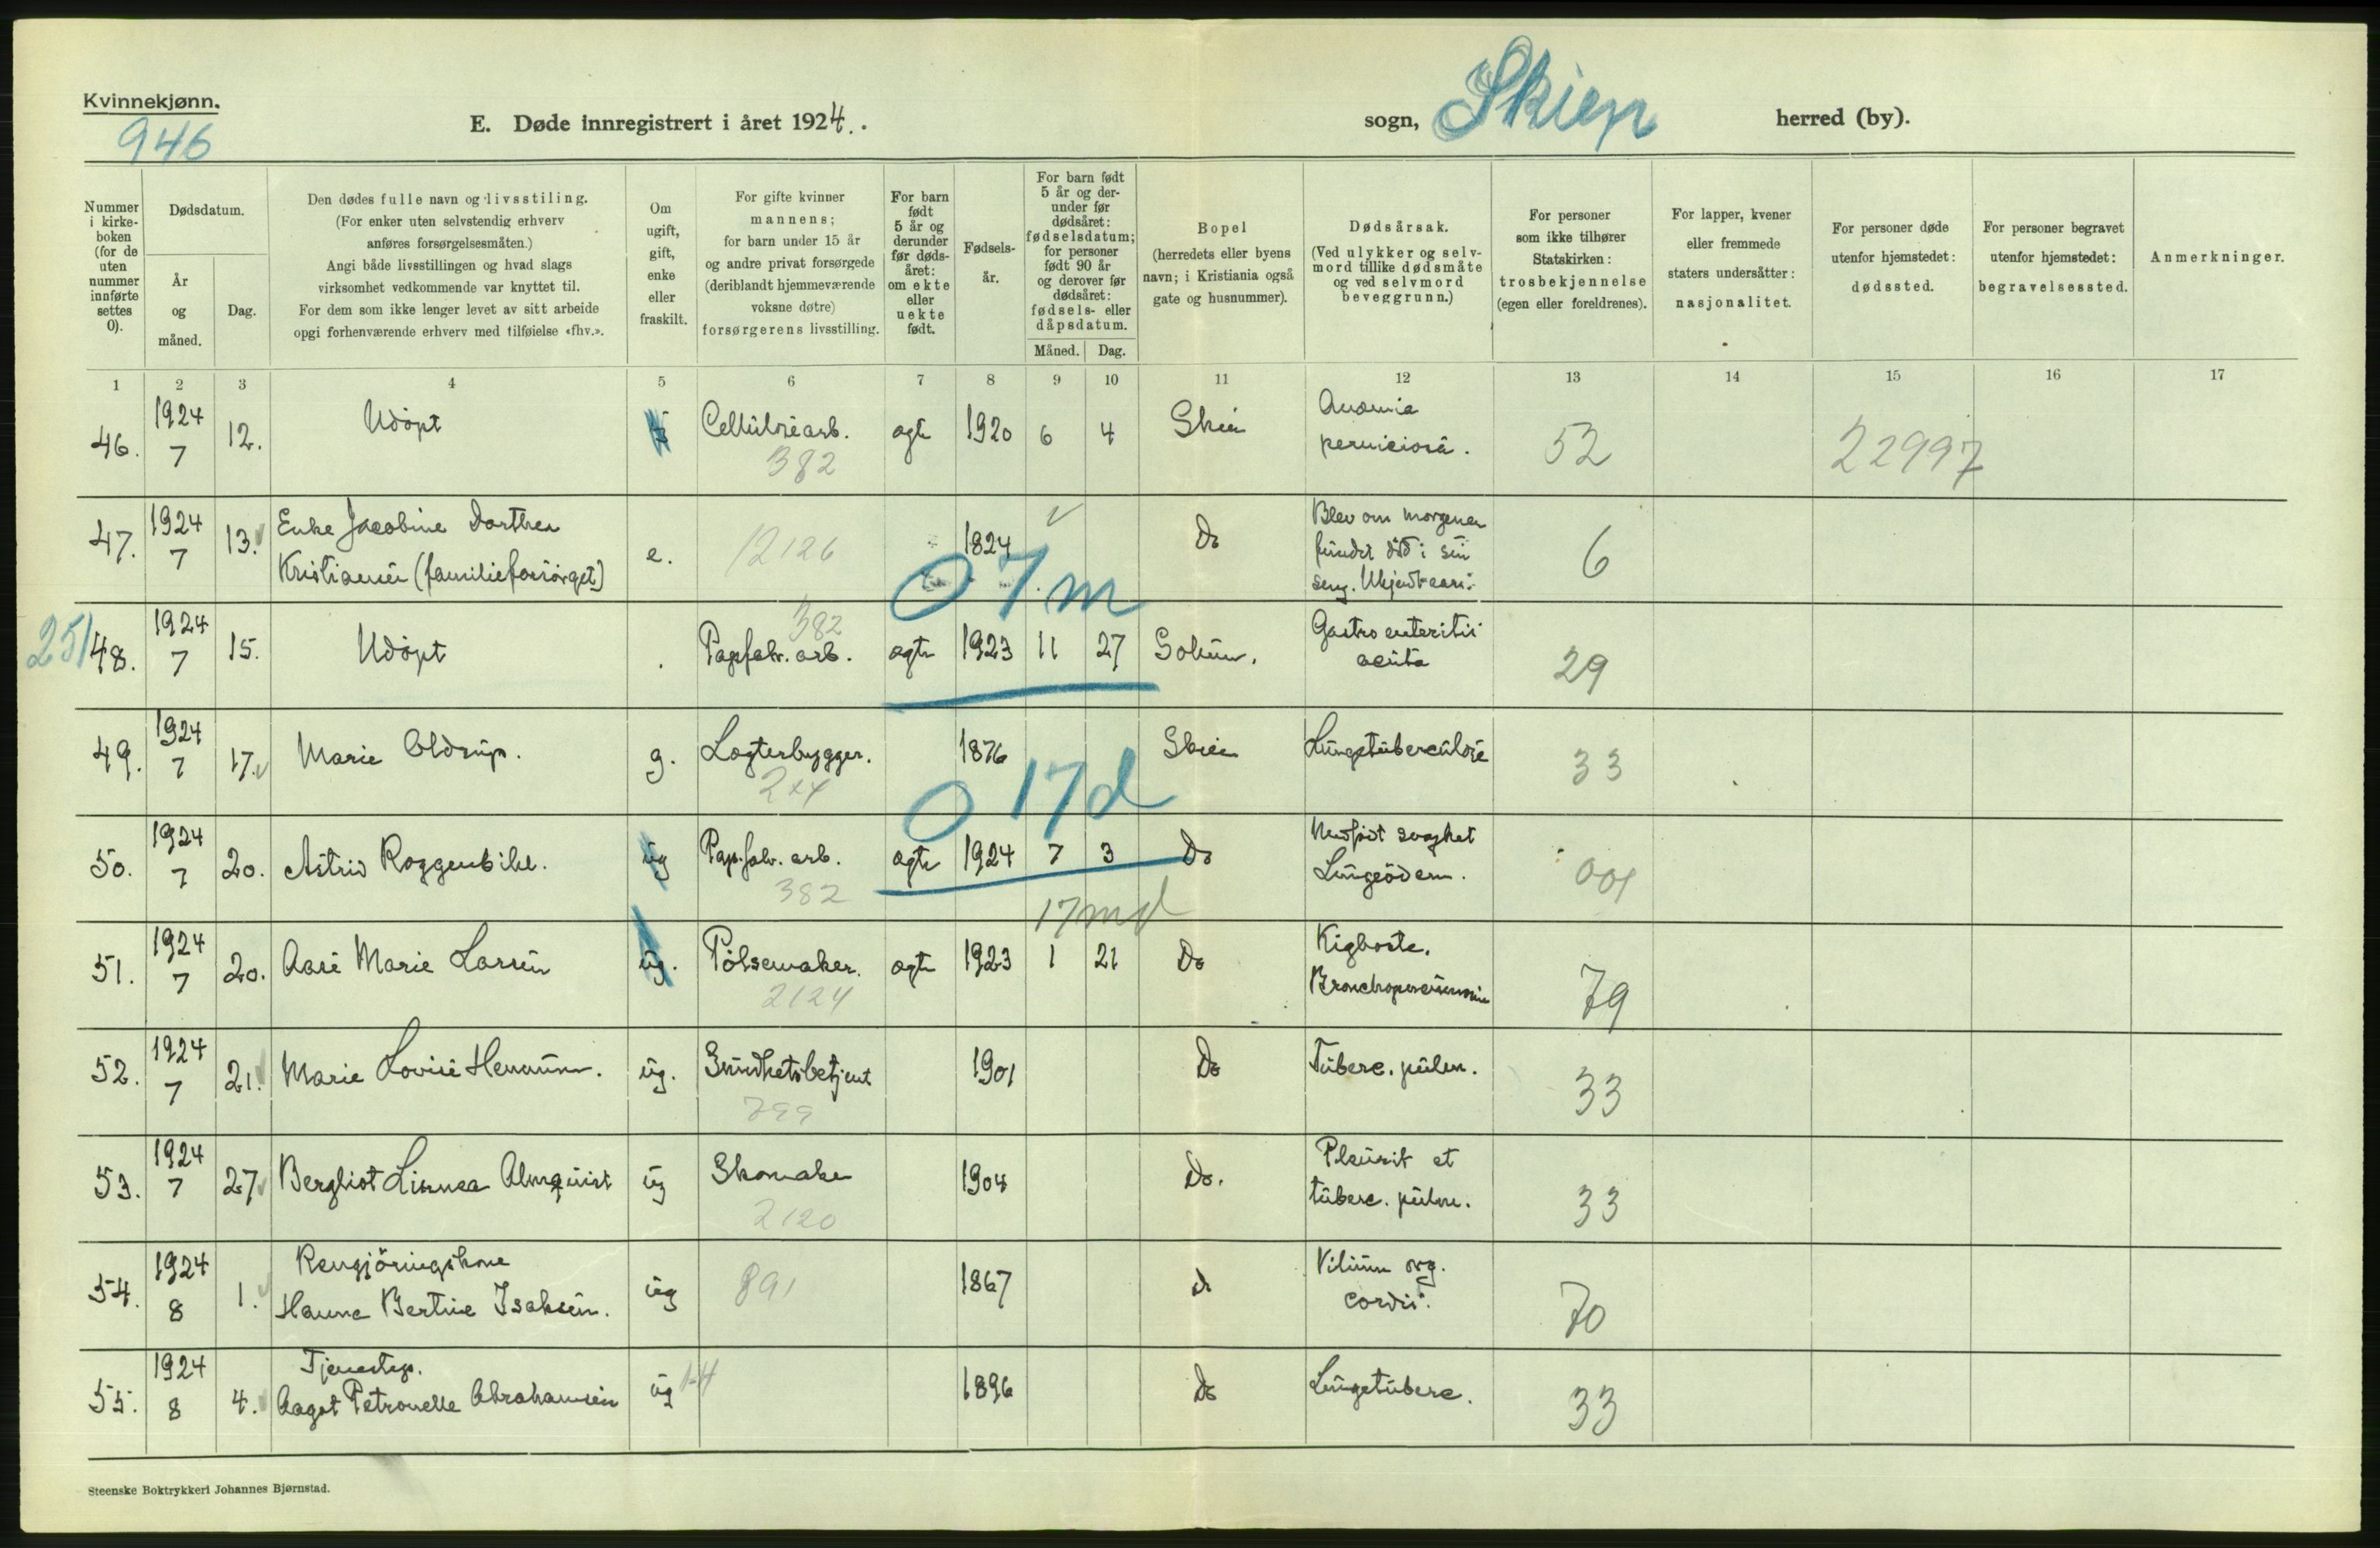 Kvinnekjønn.
946
E. Døde innregistrert i året 1924.
sogn, Skien herred (by).
Nummer i kirke- boken (for de uten nummer innførte settes 0).
Dødsdatum.
År og måned.
Dag.
Den dødes fulle navn og livsstiling.
(For enker uten selvstendig erhverv
anføres forsørgelsesmåten.)
Angi både livsstillingen og hvad slags
virksomhet vedkommende var knyttet til.
For dem som ikke lenger levet av sitt arbeide
opgi forhenværende erhverv med tilføielse «fhv.».
Om ugift, gift, enke eller fraskilt.
For gifte kvinner
mannens;
for barn under 15 år
og andre privat forsørgede
(deriblandt hjemmeværende
voksne døtre)
forsørgerens livsstilling.
For barn født 5 år og derunder før døds- året: om ekte eller uekte født.
Fødsels- år.
For barn født 5 år og der- under før dødsåret: fødselsdatum; for personer født 90 år og derover før dødsåret: fødsels- eller dåpsdatum.
Måned. Dag.
Bopel
(herredets eller byens
navn; i Kristiania også
gate og husnummer).
Dødsårsak.
(Ved ulykker og selv-
mord tillike dødsmåte
og ved selvmord
beveggrunn.)
For personer
som ikke tilhører
Statskirken:
trosbekjennelse
(egen eller foreldrenes).
For lapper, kvener
eller fremmede
staters undersåtter:
nasjonalitet.
For personer døde
utenfor hjemstedet:
dødssted.
For personer begravet
utenfor hjemstedet:
begravelsessted.
Anmerkninger.
1 2 3 4 5 6 7 8 9 10 11 12 13 14 15 16 17
46. 1924 7 12. Udöpt Cellulosearb. 382 ægte 1920 6 4 Skien Anæmia perniciosa. 52 22997
47. 1924 7 13. Enke Jacobine Dorthea
Kristiansen (familieforsörget) e. 12126 1824 Do Blev om morgenen
fundet död i sin
seng. 6
0 7 m
251 48. 1924 7 15. Udöpt 382 Papfabr. arb. ægte 1923 11 27 Solum. Gastro enteritis
acuta 29
49. 1924 7 17. Marie Oldrup. g. Lægterbygger. 1876 Skien Lungetuberculose 33
0 17 d
50. 1924 7 20. Astrid Roggenbihl. ug Pap.fabr. arb. 382 ægte 1924 7 3 Do Nyfödt svaghet
Lungeödem. 001
17 md
51. 1924 7 20. Aase Marie Larsen ug. Pölsemaker. 2124 ægte 1923 1 21 Do Kighoste.
Bronchopneumonie 79
52. 1924 7 21. Marie Lovise Hemmün. ug. Sundhetsbetjent 799 1901 Do Tuberc. pulm. 33
53. 1924 7 27 Bergliot Linnea Almquist ug Skomaker 2120 1904 Do. Pleurit et
tuberc. pulm. 33
54. 1924 8 1. Rengjöringskone
Hanna Bertine Isaksen. ug 891 1867 do Vitium org.
cordis. 70
55. 1924 8 4. Tjenestep.
Aagot Petronelle Abrahamsen ug 1896 Do Lungetuberc. 33
Steenske Boktrykkeri Johannes Bjørnstad.